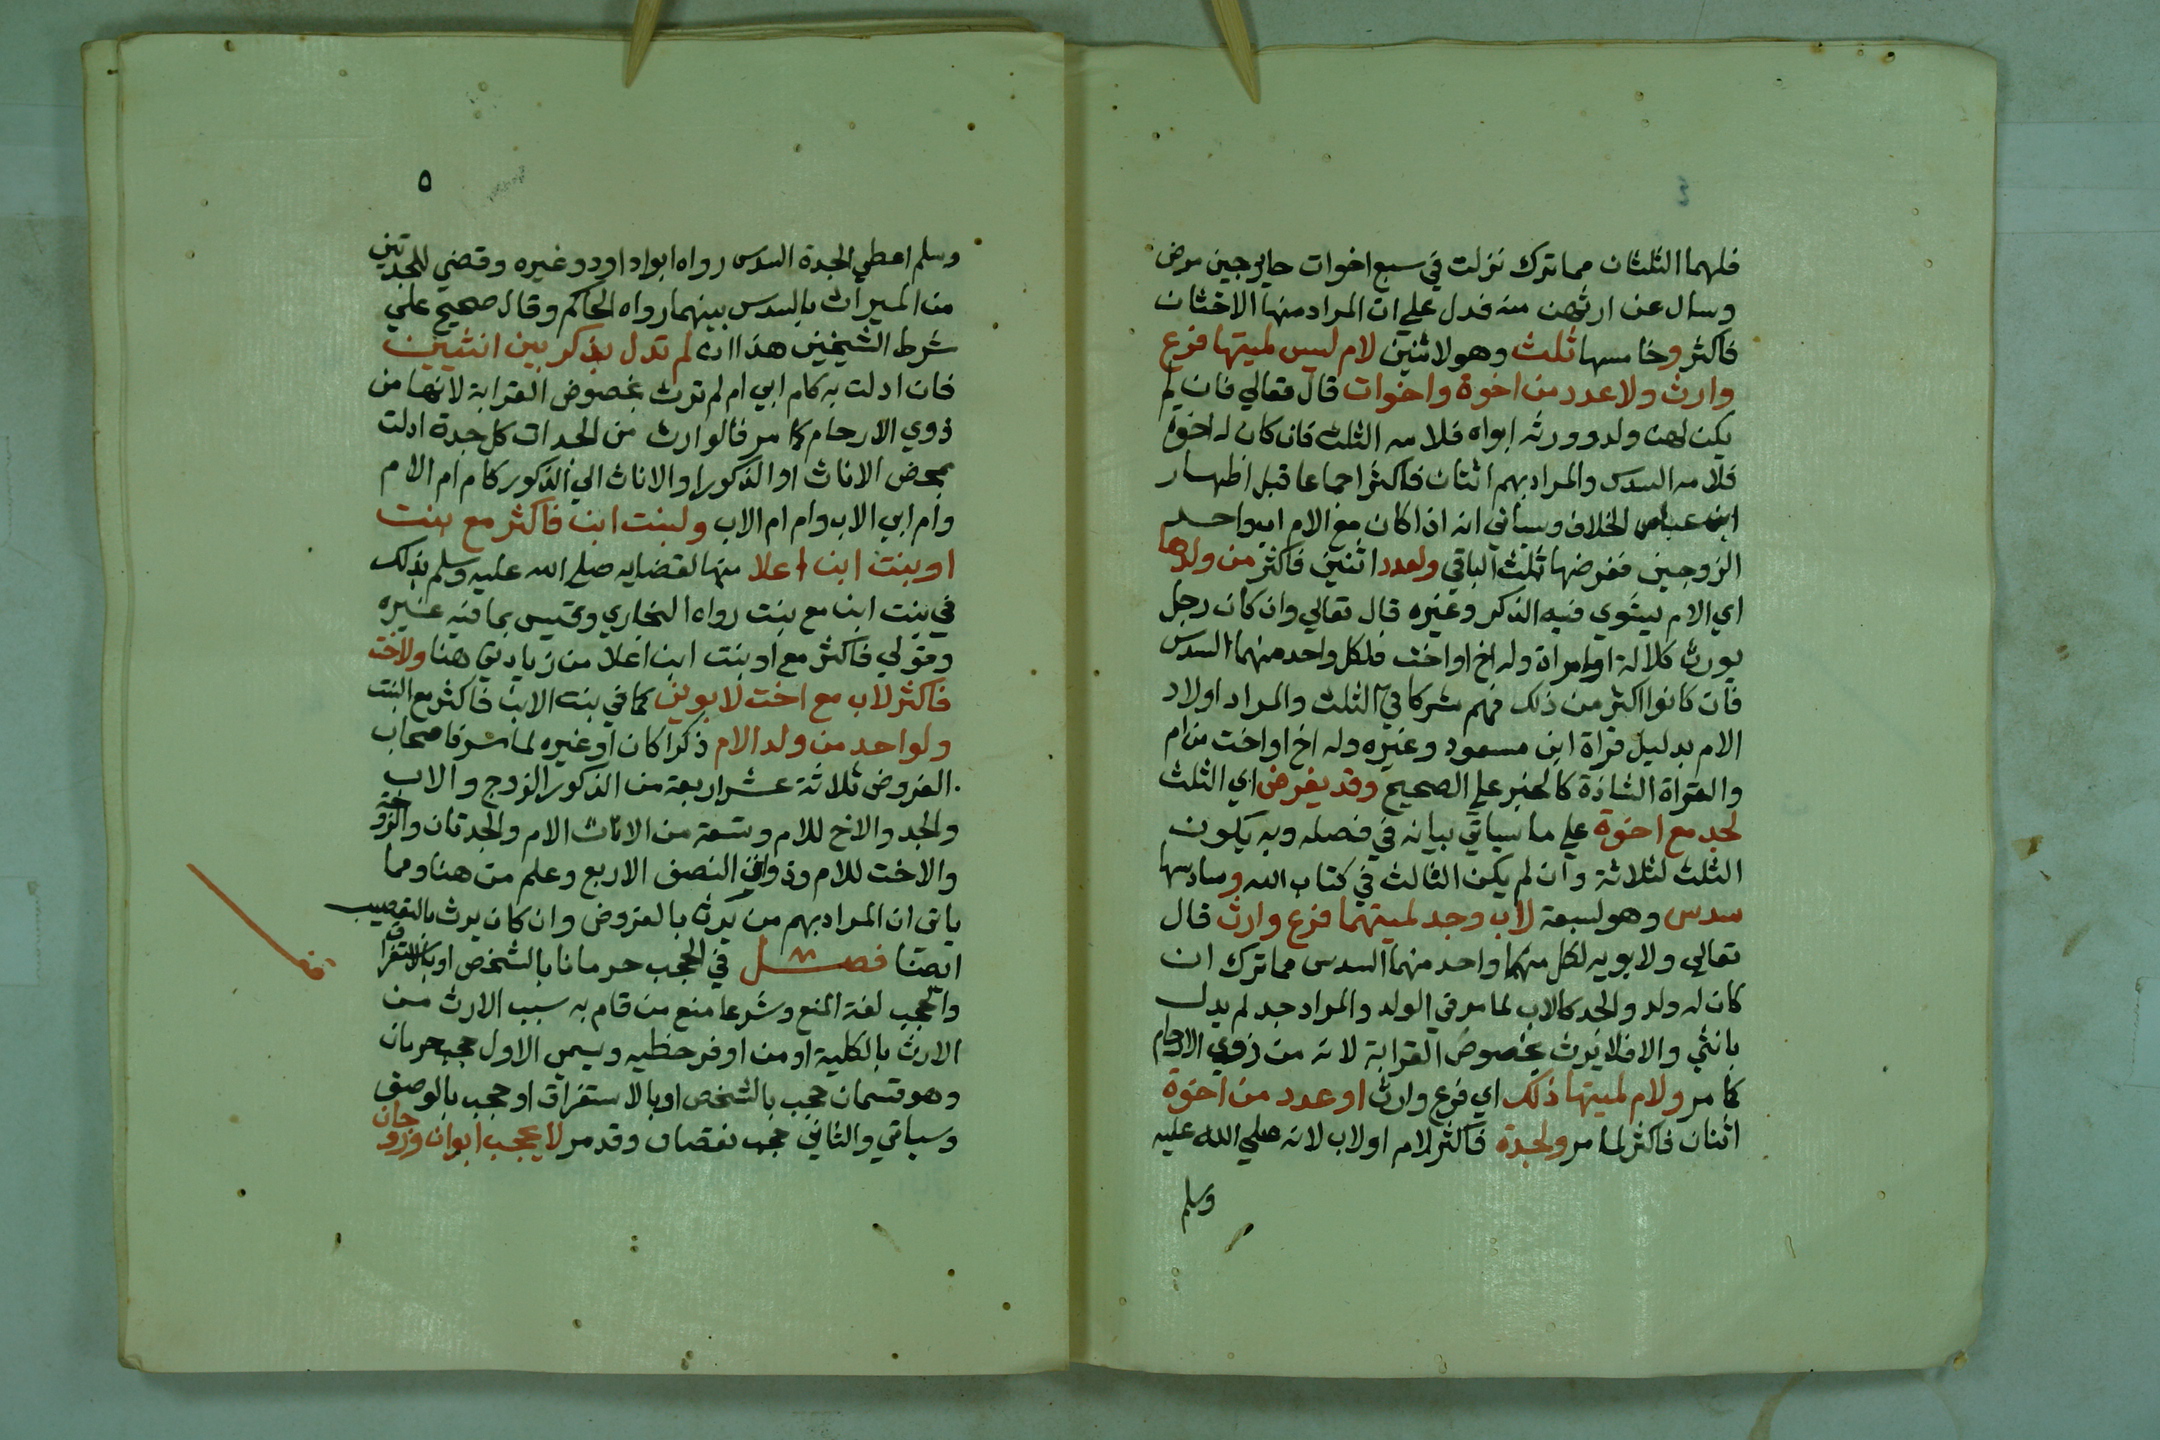 ٤
فلهما الثلثان مما ترك نزلت في سبع اخوات جابر حين مرض
وسال عن ارثهن منه فدل علي ان المراد منها الاختان
فاكثر وخامسها ثلث وهو لاثنين لام ليس لميتها فرع
وارث ولا عدد من اخوة واخوات قال تعالي فان لم
يكن له ولد وورثه ابواه فلامه الثلث فان كان له اخوة
فلامه السدس والمراد بهم اثنان فاكثر اجماعا قبل اظهار
ابن عباس الخلاف وسياتي انه اذا كان مع الام اب واحد
الزوجين ففرضها ثلث الباقي ولعدد اثنين فاكثر من ولدها
اي الام يستوي فيه الذكر وغيره قال تعالي وان كان رجل
يورث كلالة او امراة وله اخ او اخت فلكل واحد منهما السدس
فان كانوا اكثر من ذلك فهم شركا في الثلث والمراد اولاد
الام بدليل قراة ابن مسعود وغيره وله اخ او اخت من ام
والقراة الشاذة كالخبر علي الصحيح وقد يفرض اي الثلث
لجد مع اخوة علي ما سياتي بيانه في فصله وبه يكون
الثلث لثلاثة وان لم يكن الثالث في كتاب الله وسادسها
سدس وهو لسبعة لاب وجد لميتهما فرع وارث قال
تعالي ولابويه لكل منهما واحد منهما السدس مما ترك ان
كان له ولد والجد كالاب لما مر في الولد والمراد جد لم يدل
بانثي والا فلا يرث بخصوص القرابة لانه من ذوي الارحام
كما مر ولام لميتها ذلك اي فرع وارث او عدد من اخوة
اثنان فاكثر لما مر ولجدة فاكثر لام او لاب لانه صلي الله عليه
وسلم
٥
وسلم اعطي الجدة السدس رواه ابوا داود وغيره وقضي للجدتين
من الميراث بالسدس بينهما رواه الحاكم وقال صحيح علي
شرط الشيخين هذا ان لم تدل بذكر بين انثيين
فان ادلت به كام ابي ام لم ترث بخصوص القرابة لانها من
ذوي الارحام كما مر فالوارث من الجدات كل جدة ادلت
بمحض الاناث او الذكور او الاناث الي الذكور كام ام الام
وام ابي الاب وام ام الاب ولبنت ابن فاكثر مع بنت
او بنت ابن اعلا منها لقضايه صلي الله عليه وسلم بذلك
في بنت ابن مع بنت رواه البخاري وقيس بما فيه غيره
وقولي فاكثر مع او بنت ابن اعلا من زيادتي هنا ولاخت
فاكثر لاب مع اخت لابوين كما في بنت الابن فاكثر مع البنت
ولواحد من ولد الام ذكرا كان او غيره لما مر فاصحاب
الفروض ثلاثة عشر اربعة من الذكور الزوج والاب
والجد والاخ للام وتسعة من الاناث الام والجدتان والزوجة
والاخت للام وذوات النصف الاربع وعلم من هنا ومما
ياتي ان المراد بهم من يرث بالفروض وان كان يرث بالتعصيب
ايضا فصل في الحجب حرمانا بالشخص او بالاستغراق
والحجب لغة المنع وشرعا منع من قام به سبب الارث من
الارث بالكلية او من اوفر حظيه ويسمي الاول حجب حرمان
وهو قسمان حجب بالشخص او بالاستغراق او حجب بالوصف
وسياتي والثاني حجب نقصان وقد مر لا يحجب ابوان وزوجان